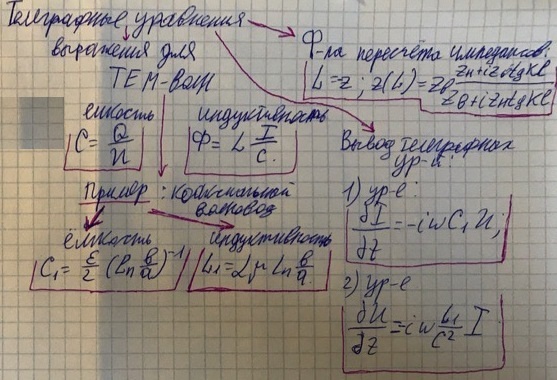 Телеграфные уравнения
выражения для
ТЕМ-волн
ёмкость
C = Q/U
индуктивность
Ф = L I/c
Пример: коаксиальный
волновод
ёмкость
C₁ = ε/2 (ln b/a)⁻¹
индуктивность
L₁ = 2μ ln b/a
Ф-ла пересчёта импедансов:
L = z; z(L) = Zв (Zн + iZв tg KL)/(Zв + iZн tg KL)
Вывод телеграфных
ур-й:
1) ур-е:
∂I/∂z = -iωC₁U;
2) ур-е
∂U/∂z = -iω L₁/c² I